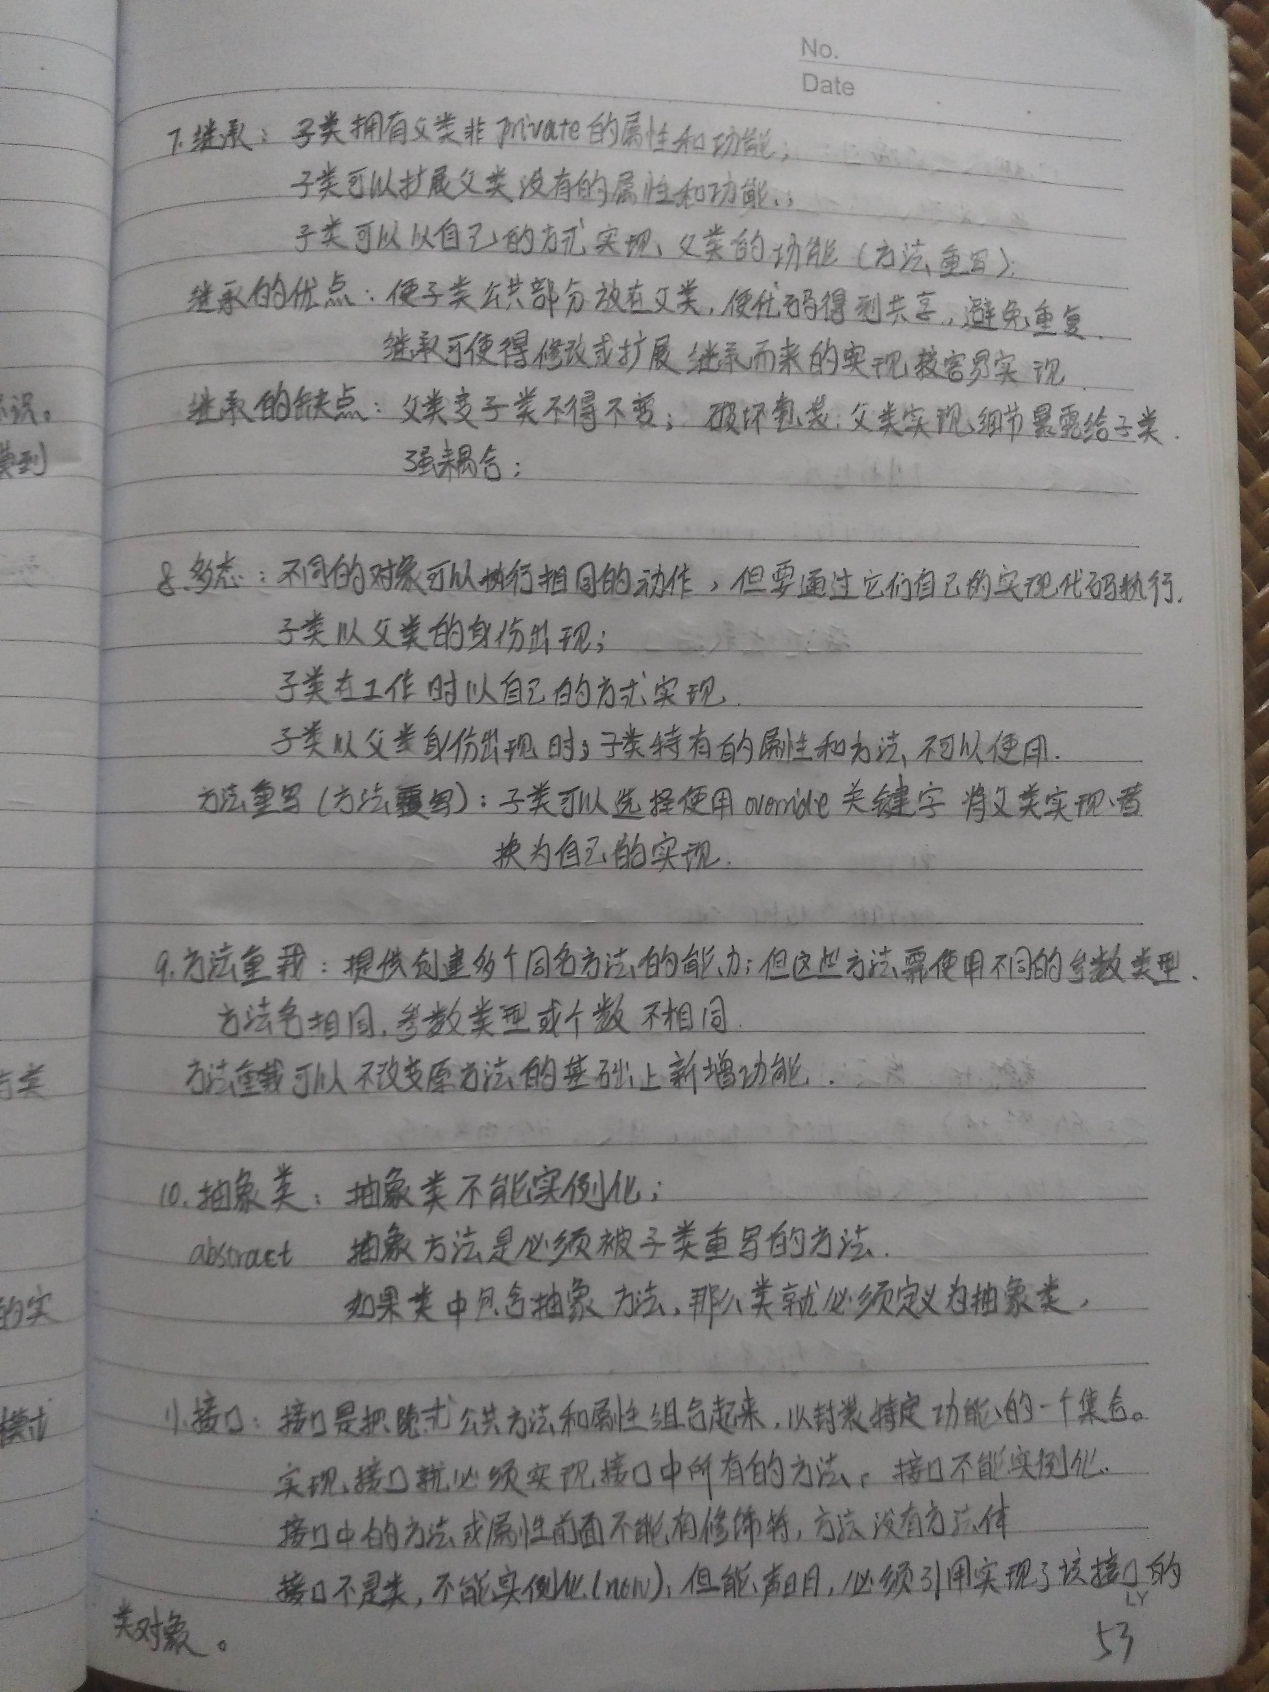 No.
Date
7.继承：子类拥有父类非private的属性和功能；
子类可以扩展父类没有的属性和功能；
子类可以以自己的方式实现父类的功能（方法重写）；
继承的优点：使子类公共部分放在父类，使代码得到共享，避免重复.
继承可使得修改或扩展继承而来的实现较容易实现.
继承的缺点：父类变子类不得不变；破坏包装：父类实现细节暴露给子类.
强耦合；
8.多态：不同的对象可以执行相同的动作，但要通过它们自己的实现代码执行.
子类以父类的身份出现；
子类在工作时以自己的方式实现.
子类以父类身份出现时，子类特有的属性和方法不可以使用.
方法重写（方法覆写）：子类可以选择使用override关键字将父类实现替
换为自己的实现.
9.方法重载：提供创建多个同名方法的能力；但这些方法需使用不同的参数类型.
方法名相同，参数类型或个数不相同.
方法重载可以不改变原方法的基础上新增功能.
10.抽象类：抽象类不能实例化；
abstract 抽象方法是必须被子类重写的方法.
如果类中包含抽象方法，那么类就必须定义为抽象类，
11.接口：接口是把隐式公共方法和属性组合起来，以封装特定功能的一个集合。
实现接口就必须实现接口中所有的方法；接口不能实例化.
接口中的方法或属性前面不能有修饰符，方法没有方法体
接口不是类，不能实例化(new)，但能声明，必须引用实现了该接口的
类对象。
LY
53
标识。
类
的实
模式